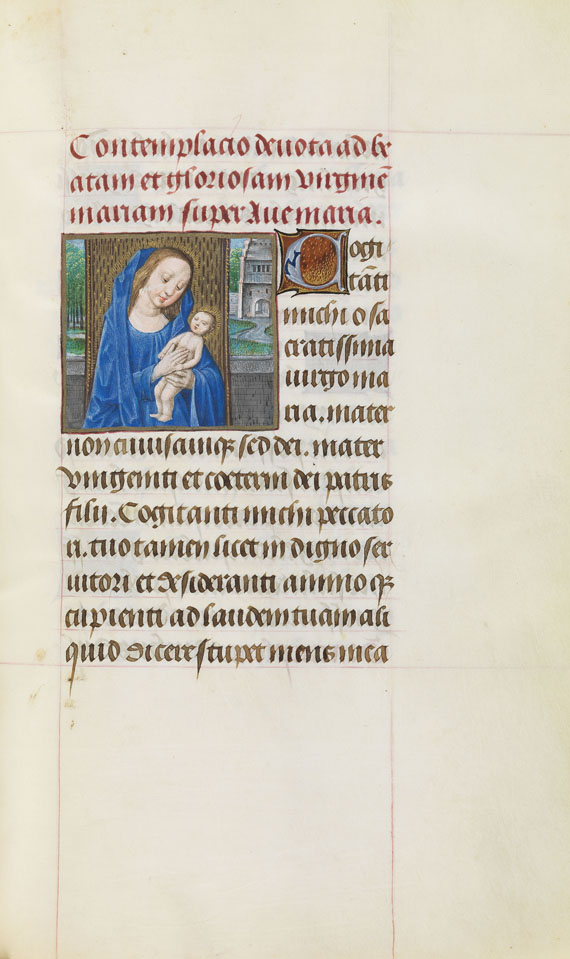 Contemplacio deuota ad be
atam et gloriosam virginē
mariam super Aue maria.
Cogi
tāti
michi o sa
cratissima
uirgo ma
ria. mater
non cuiuscumq̄ sed dei. mater
vnigeniti et coeterni dei patris
filii. Cogitanti michi peccato
ri. tuo tamen licet in digno ser
uitori et desideranti animo q̄
cupienti ad laudem tuam ali
quid dicere stupet mens mea